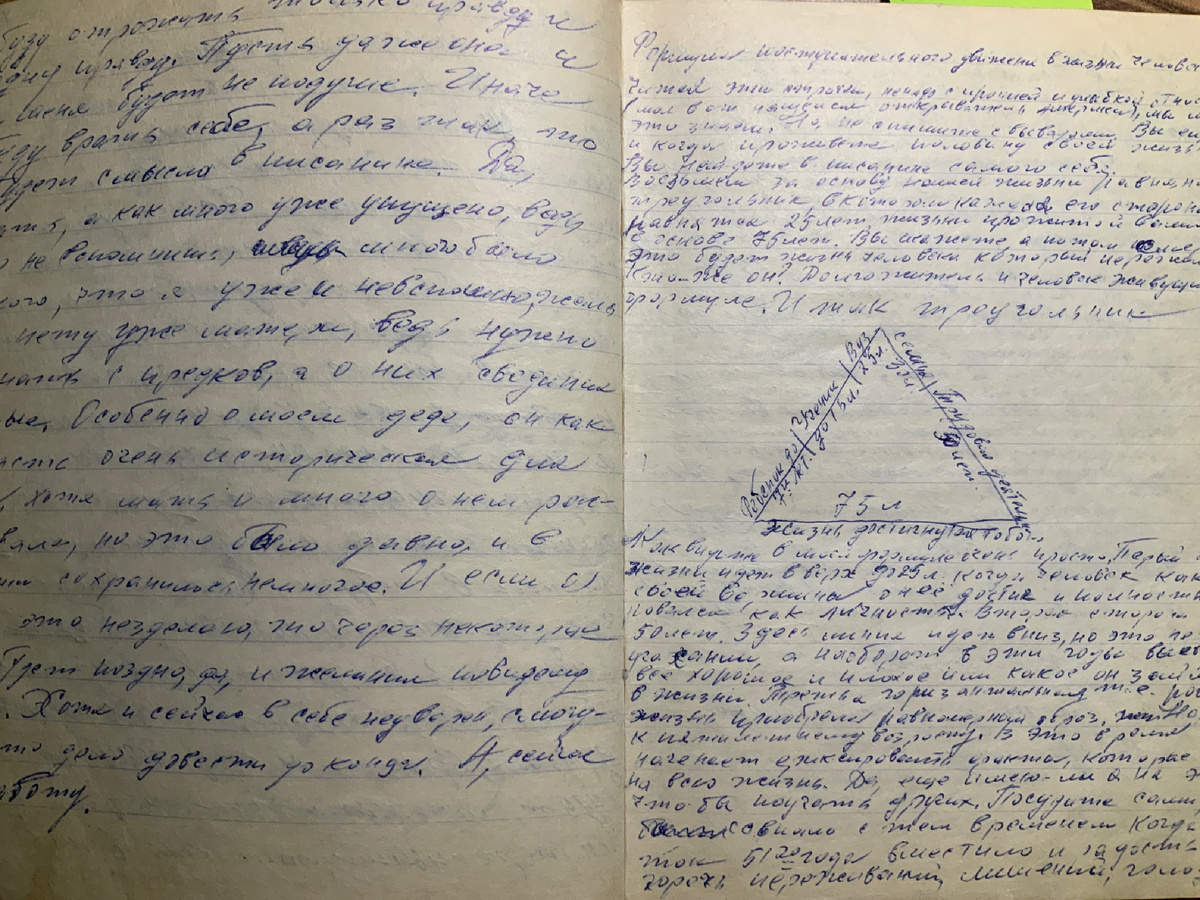 буду отрожать только правду и
правду. Пусть даже она и
меня будет не подуше. Иначе
буду врать себе, а раз так, то
смысла в писанине. Да,
а как много уже упущено, ведь
не вспомнишь, много было
что я уже и невспомню,
нету уже матери, ведь нужно
с предков, а о них сведения
Особенно о моем деде, он как
очень историческая для
хотя мать и много о нем рас-
но это было давно, и в
сохранилось немногое. И если я
это незделаю, то через некоторое
будет поздно, да, и желания повидему
. Хотя и сейчас в себе неуверен, смогу-
это дело довести до конца. А, сейчас
работу.
Формула поступательного движени в жизни челове
Читая эти строчки, с иронией и улыбкой
мол вот нашелся открыватель Америки, мы и
это знаем. Но, не спишите с выводами. Вы
и когда проживете половину своей жизни
Вы найдете в писанине самого себя.
Возьмем за основу нашей жизни
треугольник в котором каждая его сторона
равна так 25 лет жизни прожитой вами
в основе 75 лет. Вы скажете, а потом
это будет жизнь человека который
Кто-же он? Долгожитель и человек живущий
формуле. И так треугольник
Ребенок до 7и лет.
Учение до 15 л.
Вуз 25 л.
семья 30 л.
Трудовая 50 лет.
75 л
Жизнь достигнутая тобо
Как видите в моей формуле очень просто. Первый
жизни идет в верх до 25 л. когда человек как
своей вершины он её достиг и полностью
как личность. Вторая сторона
50 лет. Здесь линия идет вниз, но это не
угасание, а наоборот в эти годы
все хорошое и плохое или какое он
в жизни. Третья горизонтальная т.е.
жизнь приобрела равномерный
к пятилетнему возрасту. В это время
начинает фиксировать факты, которые
на всю жизнь. Да, еще имею-ли я на э
что-бы поучать других. Посудите сами,
с тем временем когда
так 51 год вместило и радость
горечь переживаний, лишений,